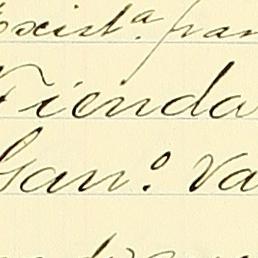 Exist.ª fran
Tienda
Gan.º Va